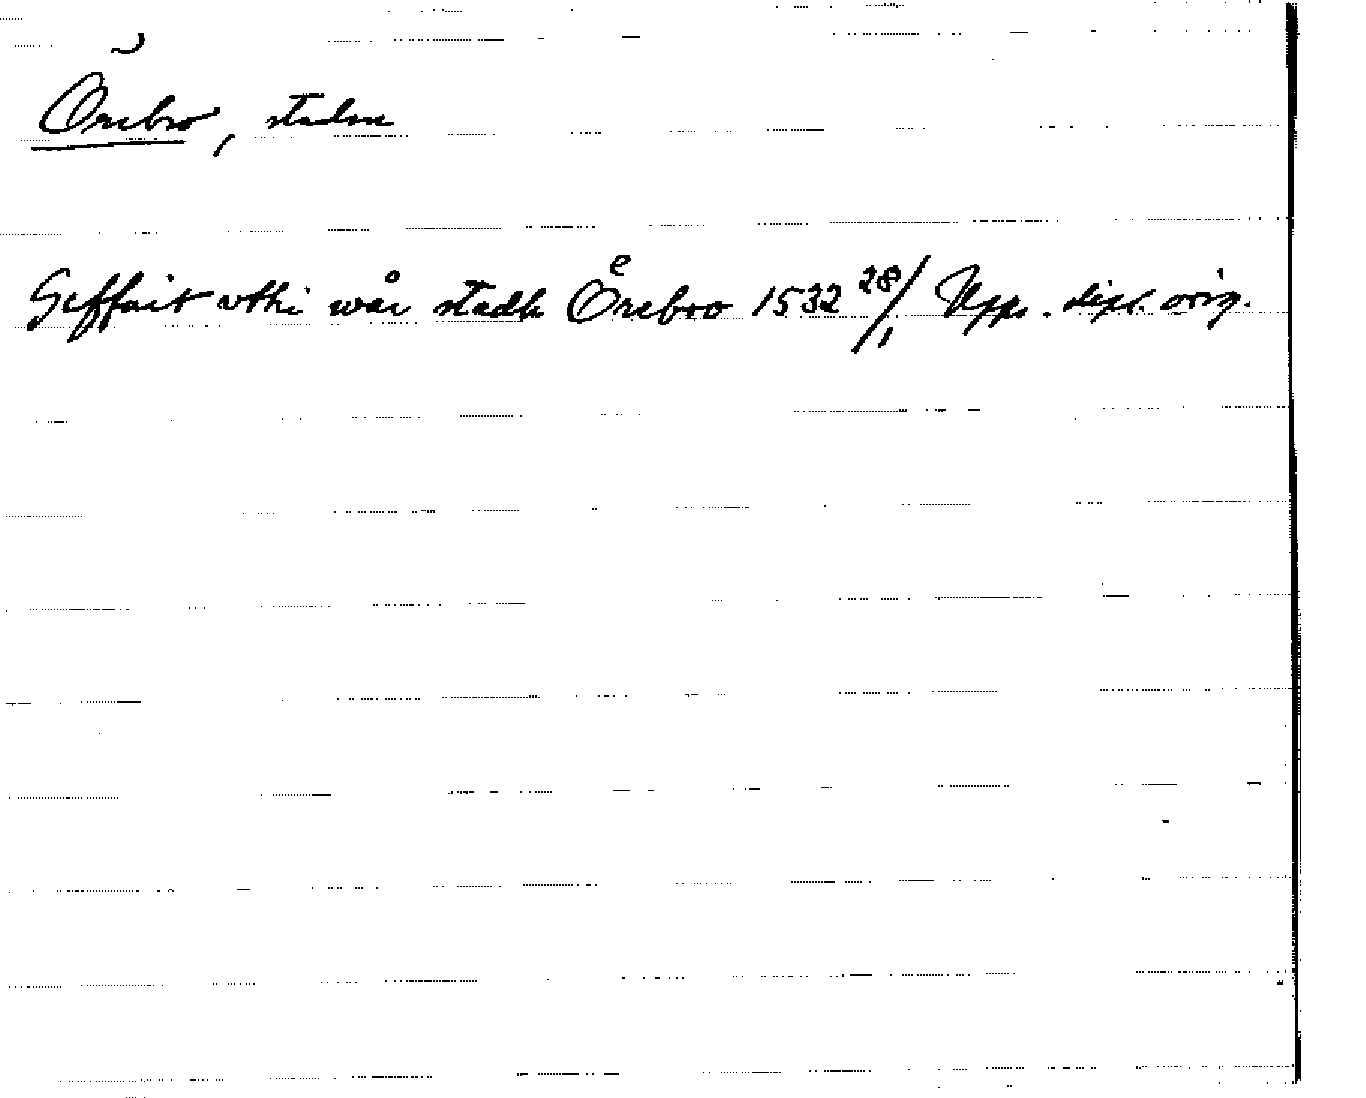 Örebro, staden
Geffuit vthi wår stadh Oͤrebroo 1532 28/1 Upps. dipl. orig.